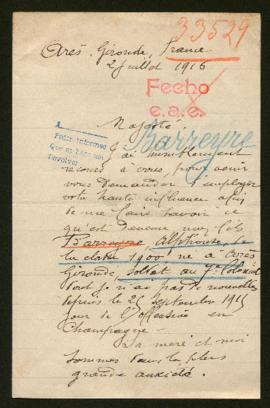 33529
Arès. Gironde, France
2 juillet 1916
Fecho
e.a.e.
Majesté
Barreyre
J'ai humblement
recours à vous, pour venir
vous demander d'employer
votre haute influence afin
de me faire savoir ce
qu'est devenu mon fils
Barreyre Alphonse, de
la classe 1900 né à Arès
Gironde, Soldat au 7e Colonial
dont je n'ai pas de nouvelles
depuis le 25 Septembre 1915
jour de l'offensive en
Champagne -
Sa mère et moi
sommes dans la plus
grande anxiété.